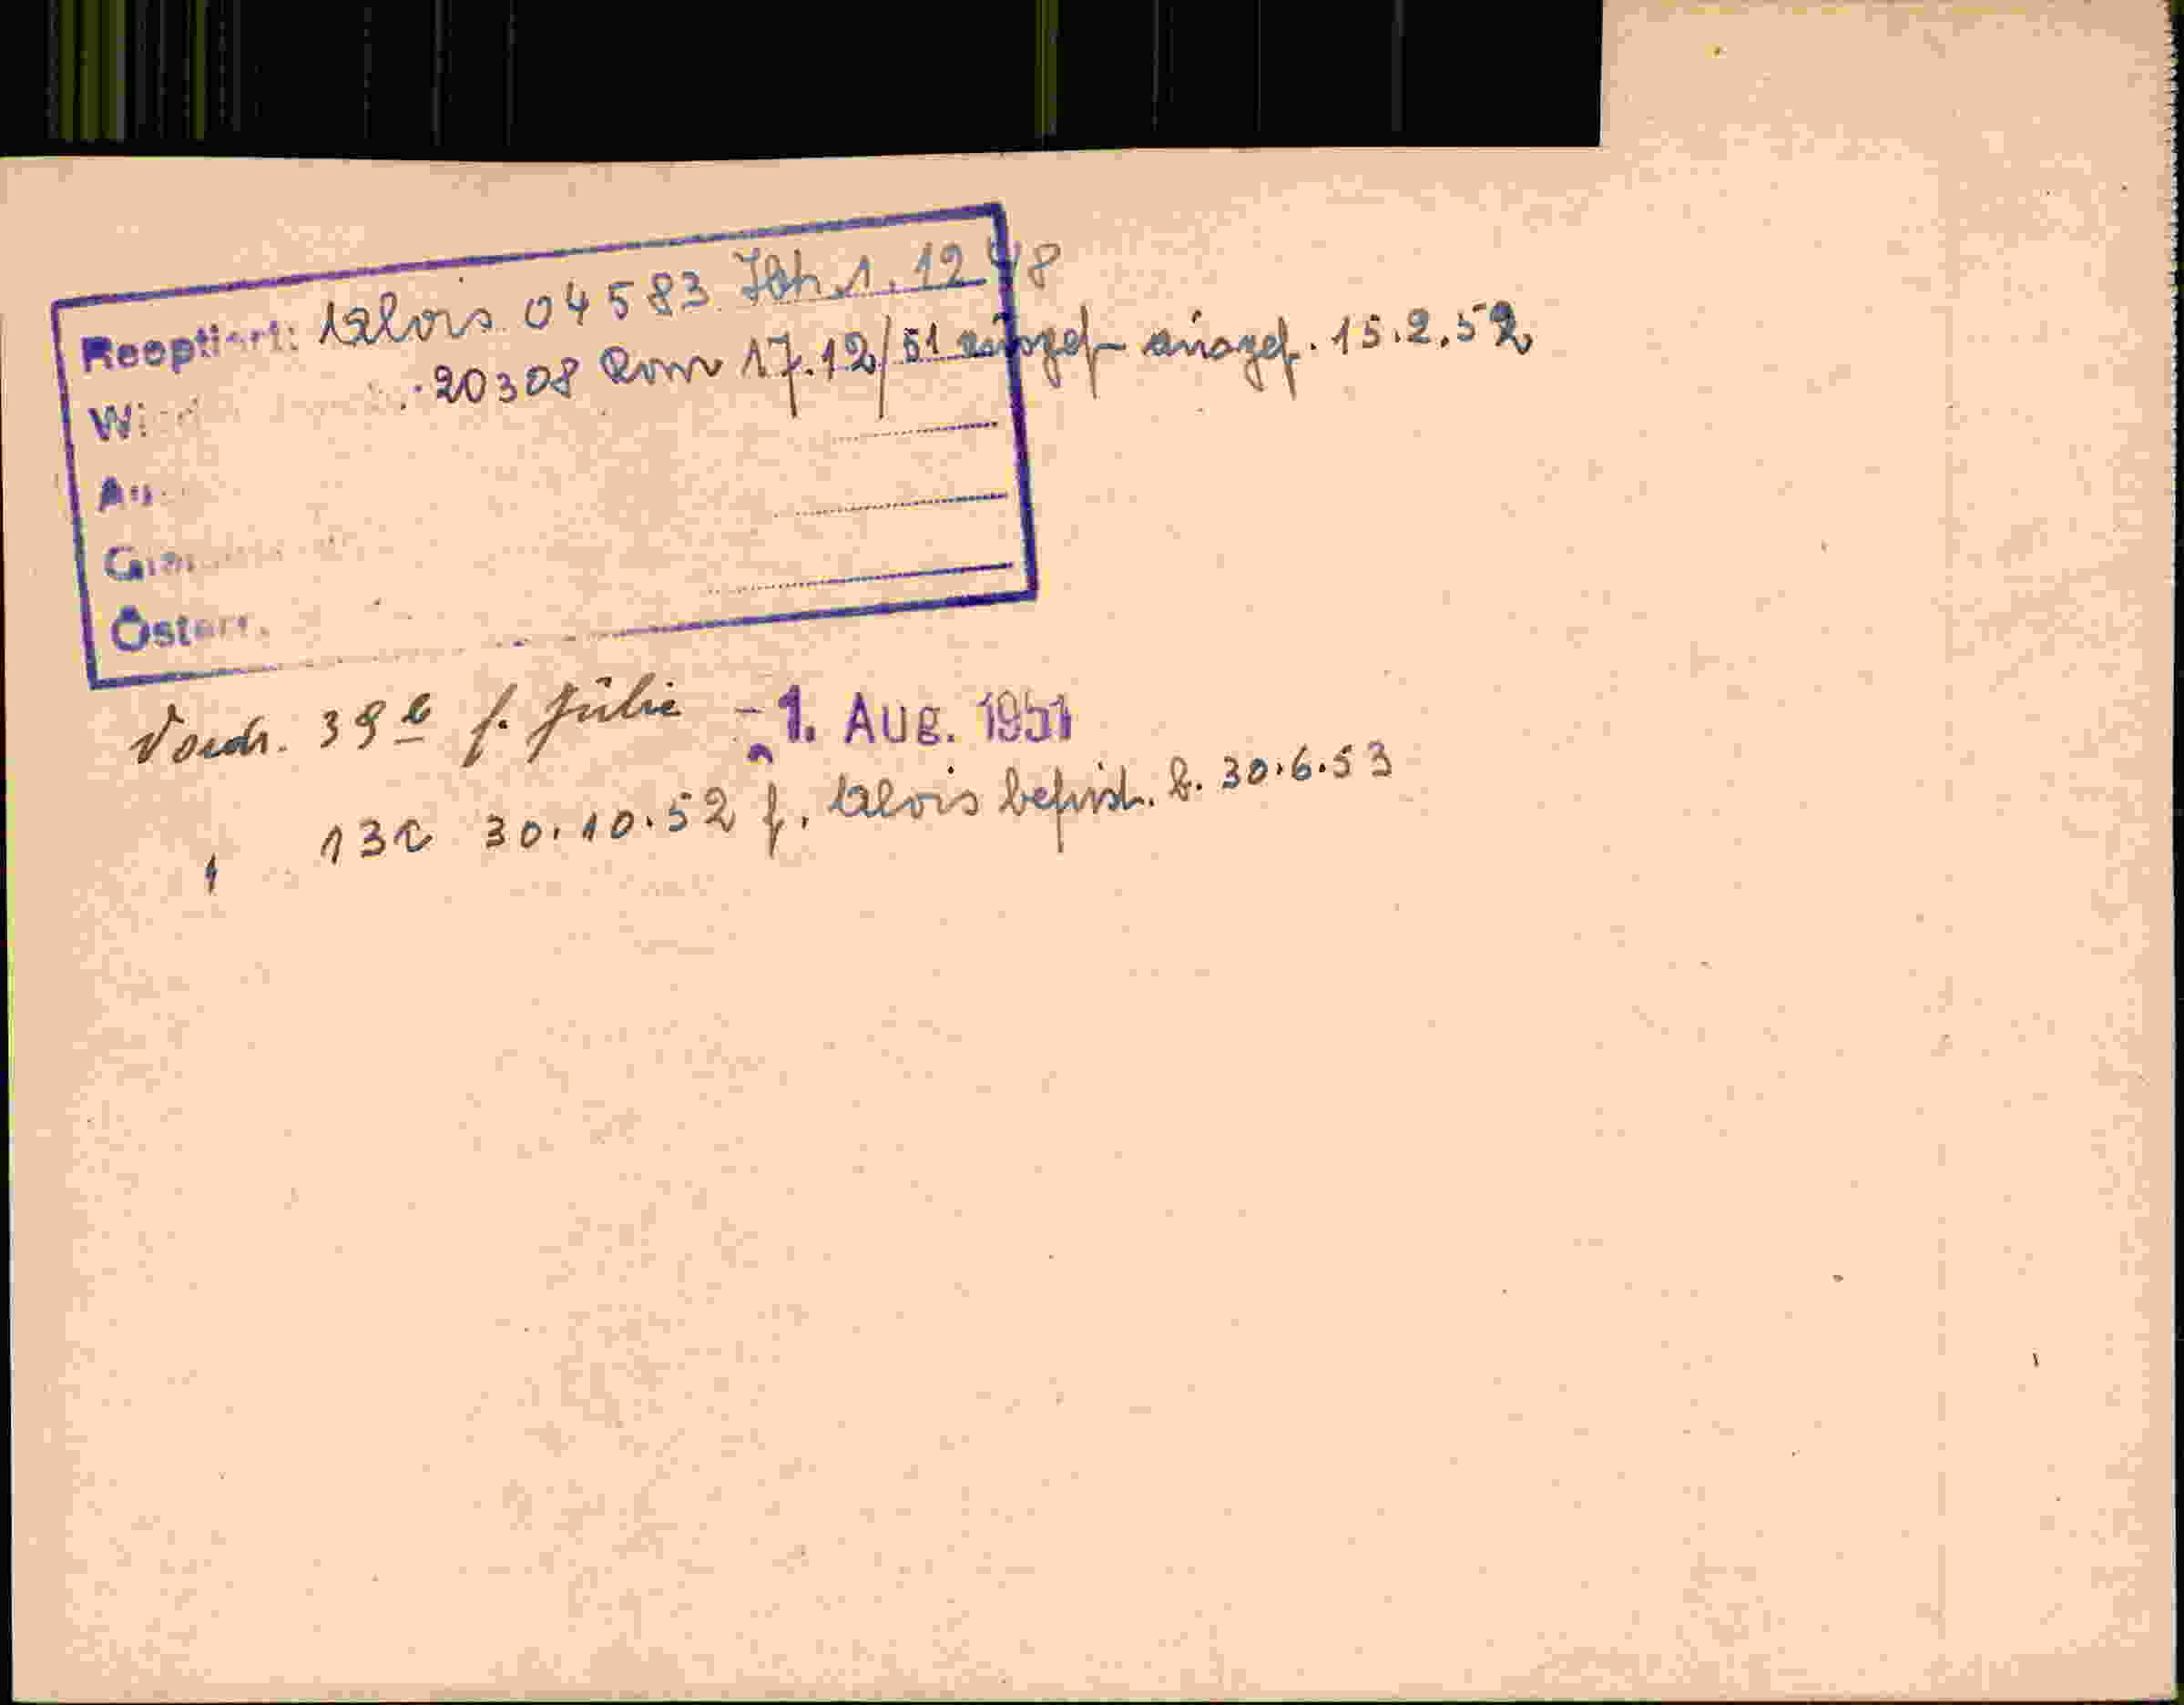 Reoptiert: Alois 04583 Ibk 1.12 48
Wi
20308 Rom 17.12/51 ausgef. ausgef. 15.2.52
Österr.
Vordr. 39b f. Julie -1. Aug. 1951
13c 30.10.52 f. Alois befrist. b. 30.6.53